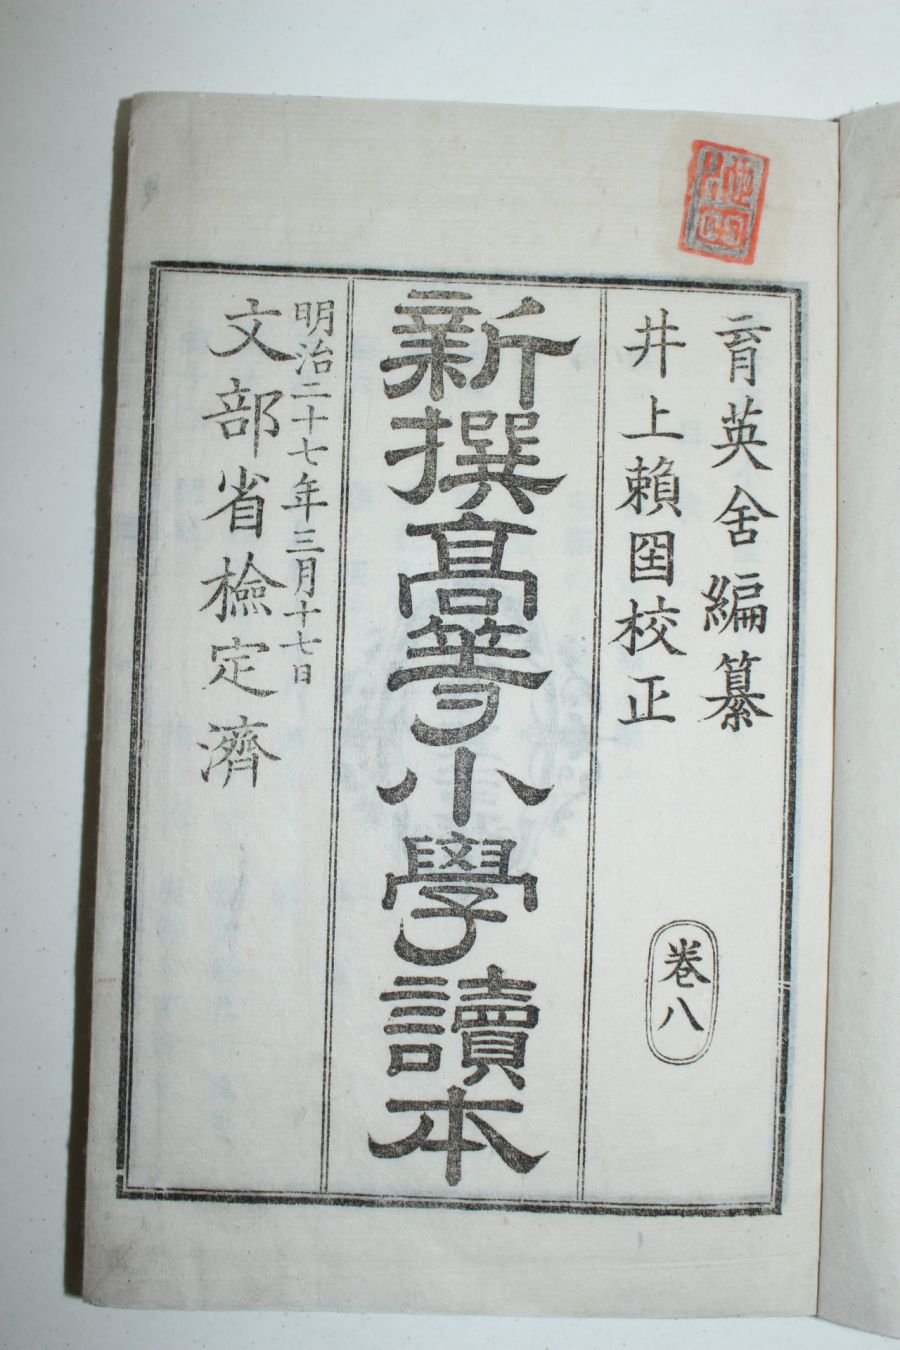 育英舍編纂
井上賴囶校正
巻八
新撰髙等小學讀本
明治二十七年三月十七日
文部省檢定濟